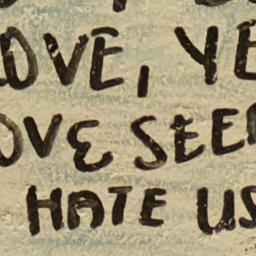 LOVE, YE
OVE SEE
HATE US